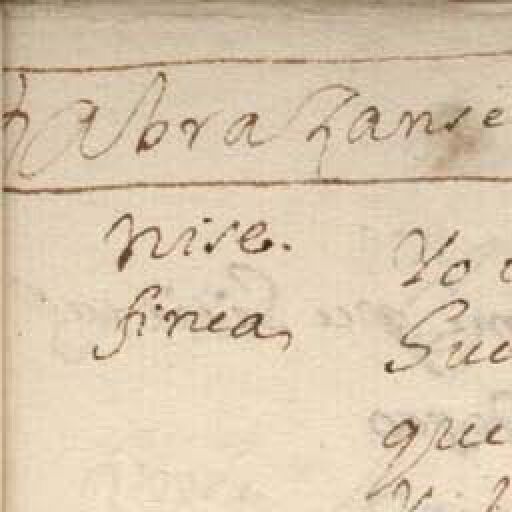 Abrazanse
nise.
finea
Yo
Suc
que